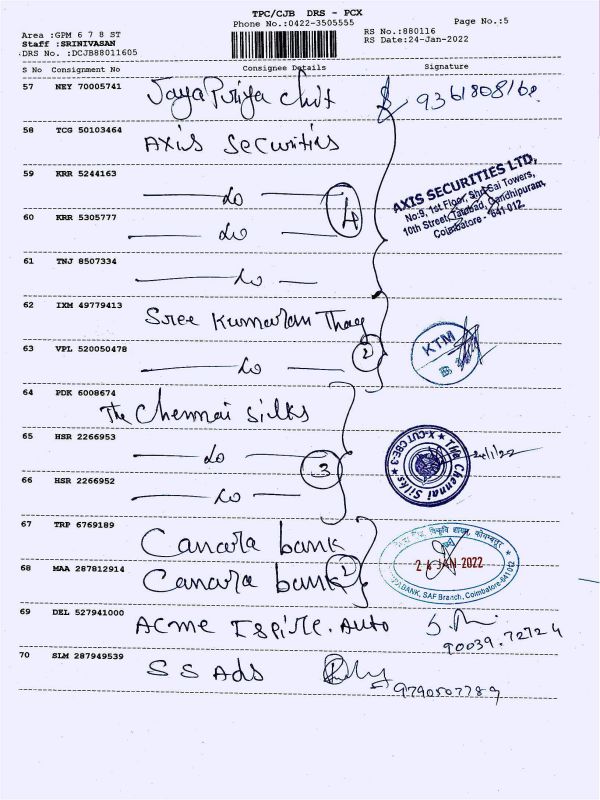 TPC/CJB DRS - PCX
Phone No.:0422-3505555
Page No.:5
Area :GPM 6 7 8 ST
Staff :SRINIVASAN
DRS No. :DCJB88011605
RS No.:880116
RS Date:24-Jan-2022
S No Consignment No Consignee Details Signature
57 NEY 70005741 Jaya Puriya Chit 9361808168
58 TCG 50103464 Axis Securities
59 KRR 5244163 Do
60 KRR 5305777 Do 4
61 TNJ 8507334 Do
AXIS SECURITIES LTD,
No:9, 1st Floor, Shri Sai Towers,
10th Street, Tatabad, Gandhipuram,
Coimbatore - 641 012.
62 IXM 49779413 Sree Kumaran Thag
63 VPL 520050478 Do 2
KTM
64 PDK 6008674 The Chennai Silks
65 HSR 2266953 Do 3
66 HSR 2266952 Do
The Chennai Silks ★ X-CUT CBE-3 ★
24/1/22
67 TRP 6769189 Canara bank
68 MAA 287812914 Canara bank 2
24 JAN 2022
BANK, SAF Branch, Coimbatore-641012
69 DEL 527941000 Acme Ispire. Auto 90039.72724
70 SLM 287949539 S S Ads 9790507789